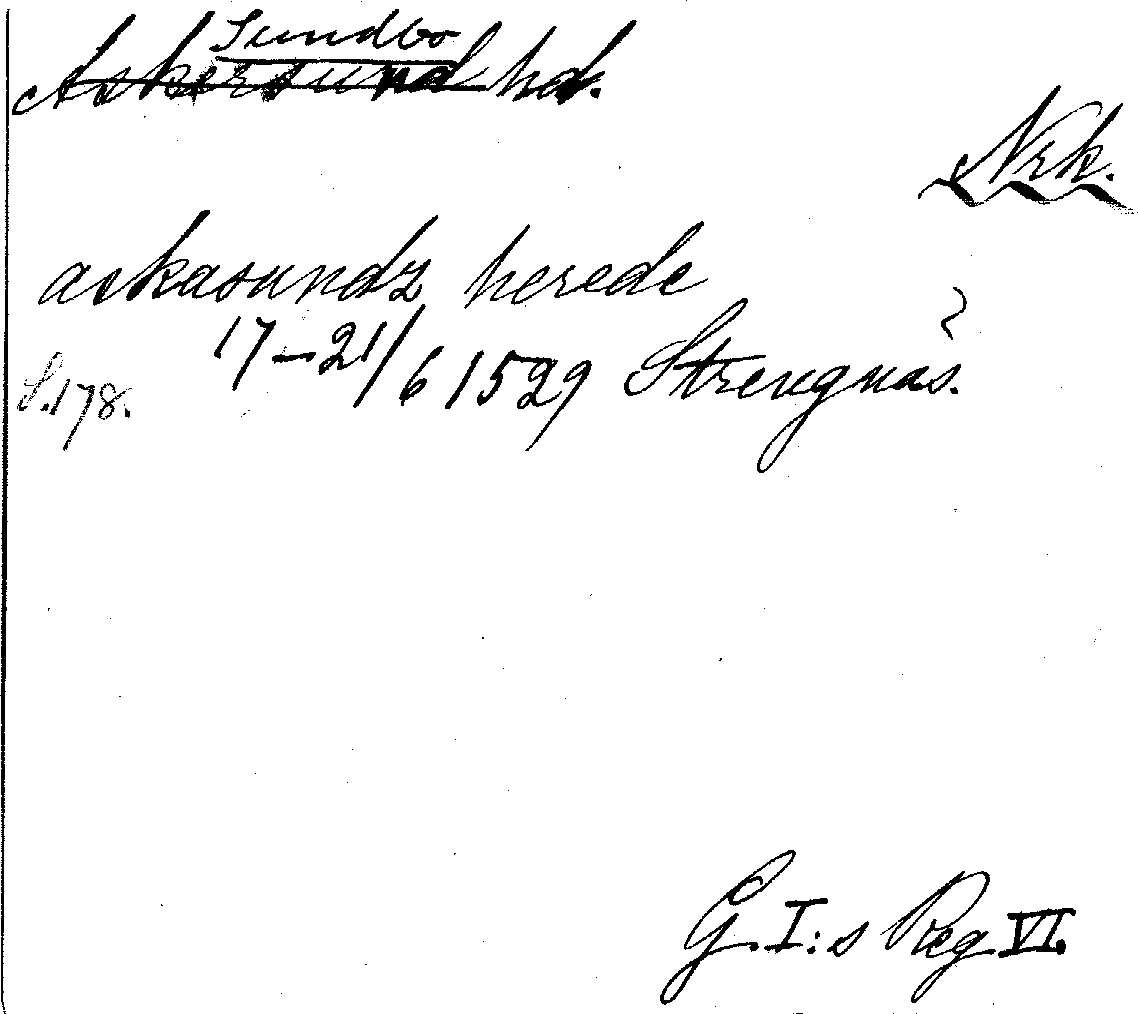 Sundbo
Askersund hd.
Nrk.
askasundz herede
17–21/6 1529 Strengnäs.
S. 178.
G. I:s Reg VI.